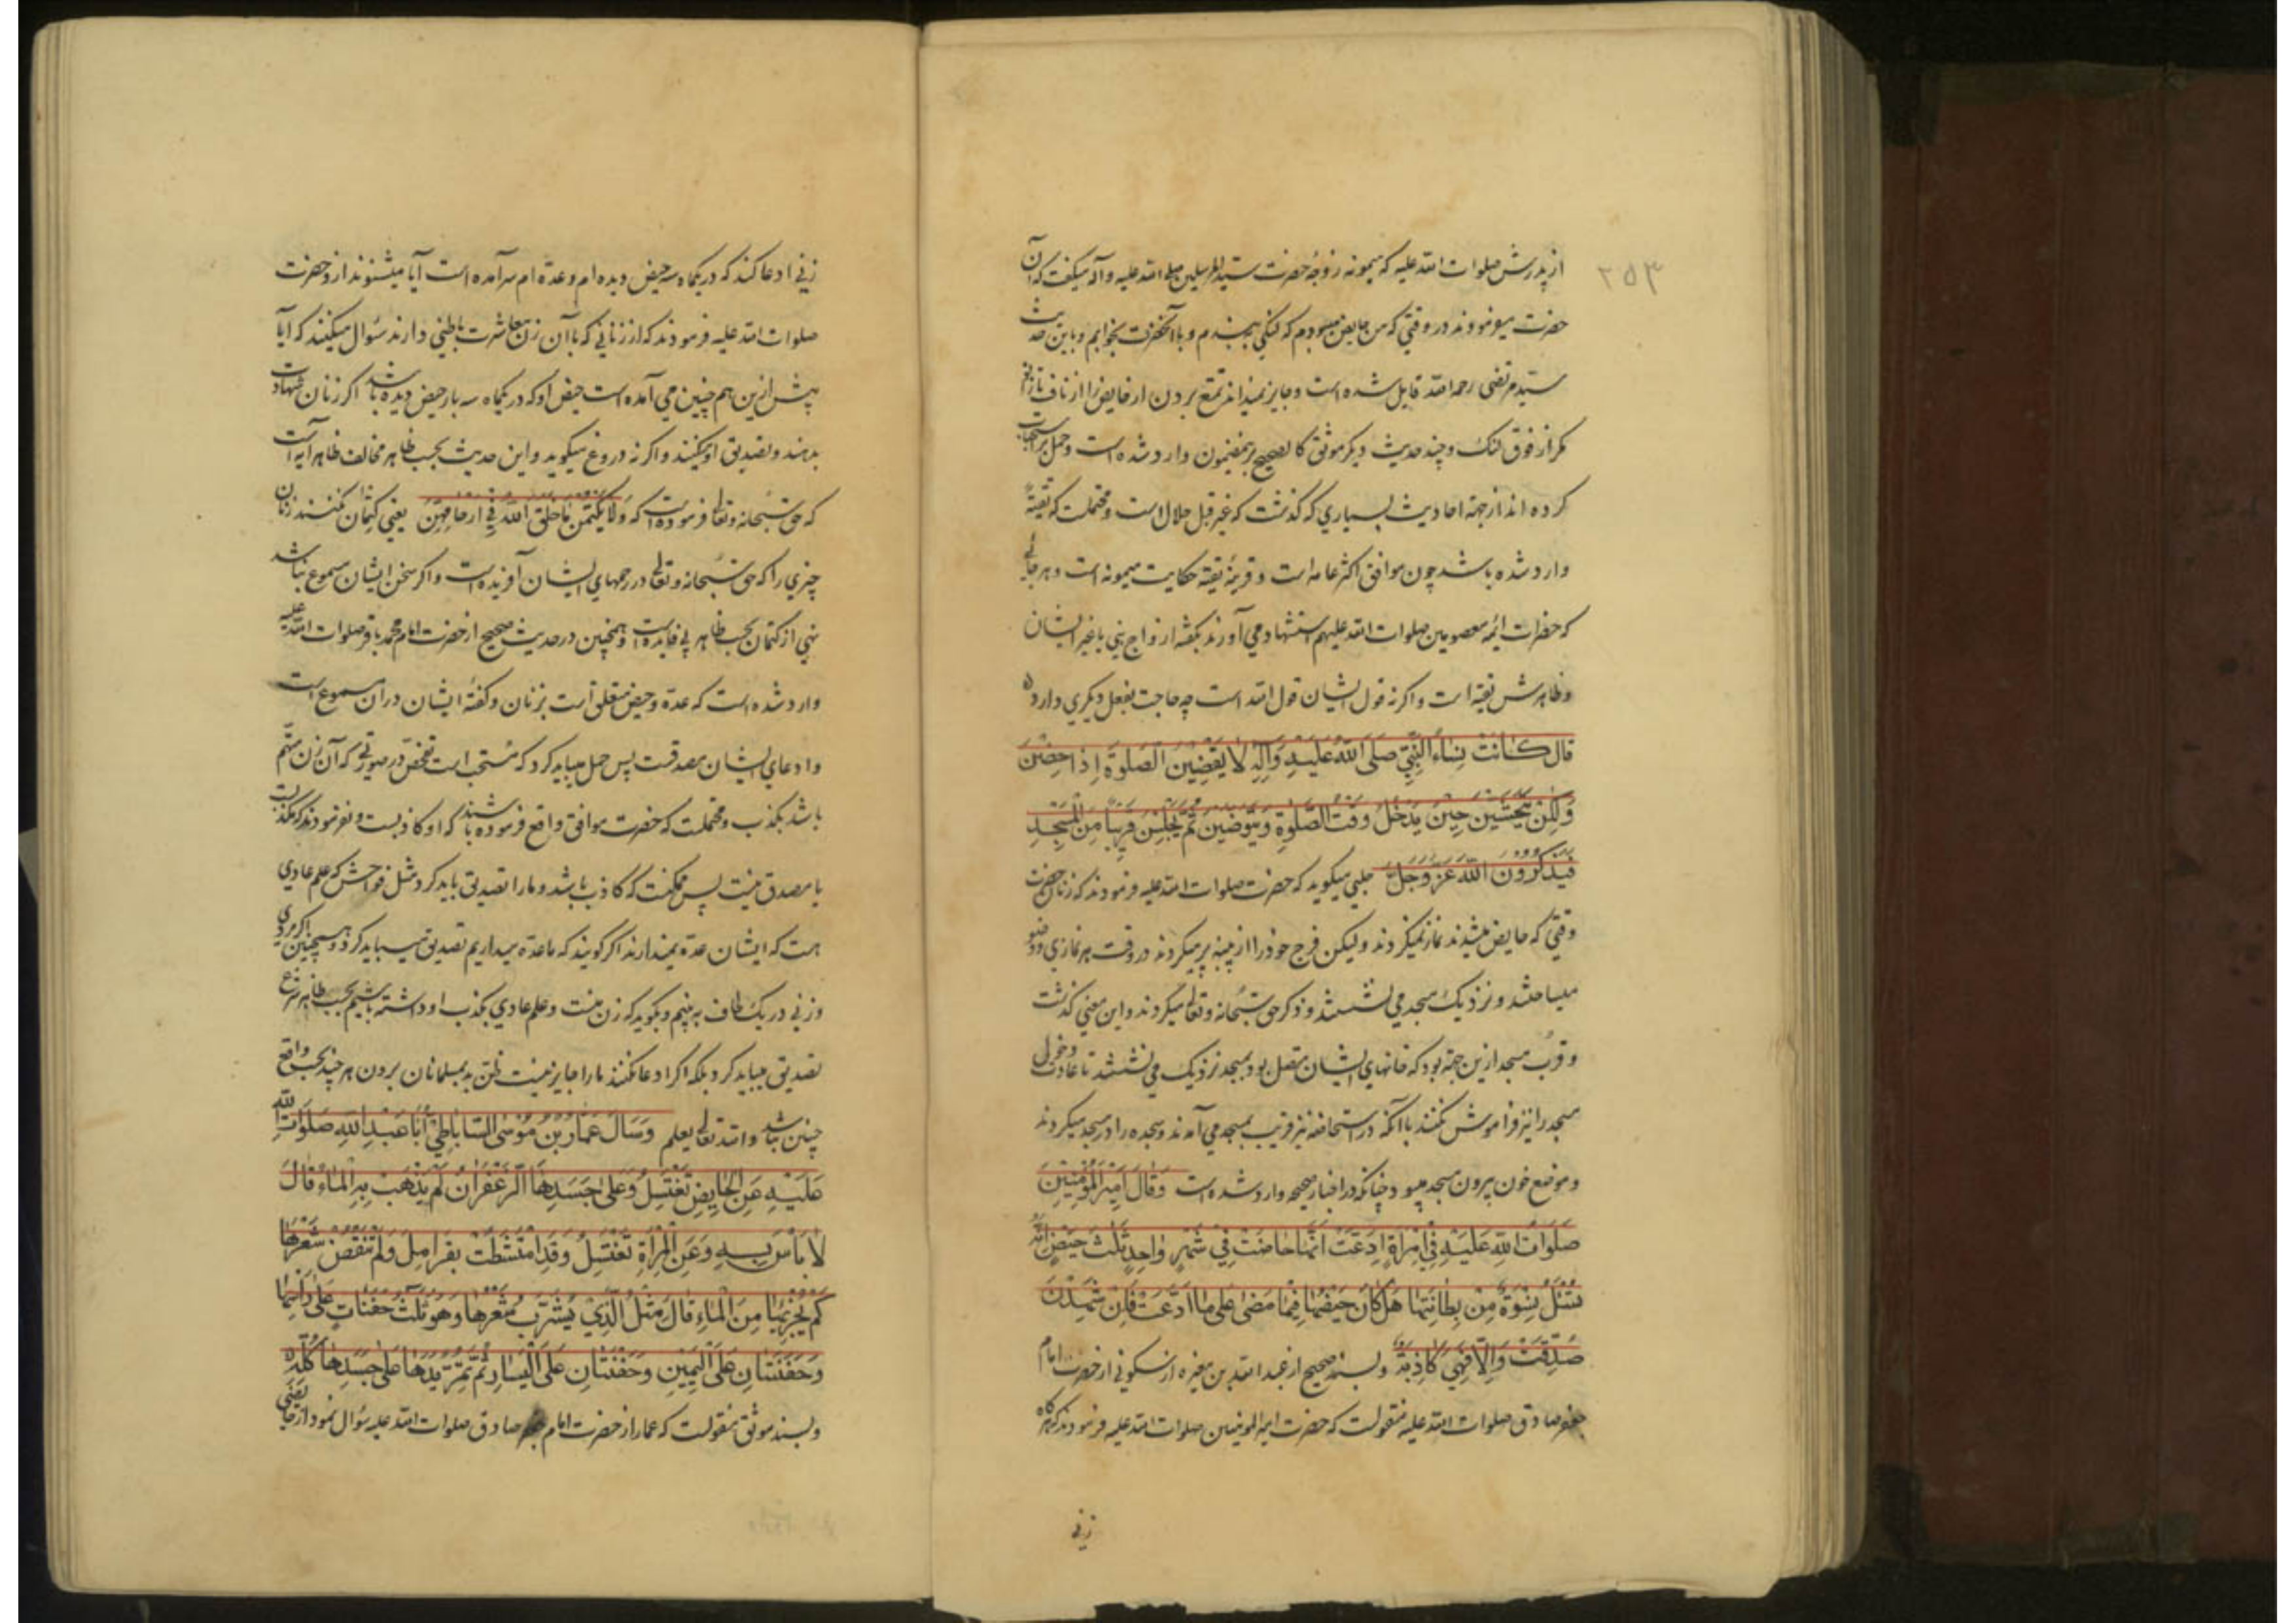 ۲۵۳
از پدرش صلوات الله علیه که میمونه زوجهٔ حضرت سید المرسلین صلی الله علیه وآله میگفت که آن
حضرت میفرمودند در وقتی که من حایض میبودم که لنگی ببندم و با آنحضرت بخوابم و باین حدیث
سید مرتضی رحمه الله قایل شده است و جایز نمیداند تمتع بردن از حایض را از ناف تا زانو
مگر از فوق لنک و چند حدیث دیگر موثق کالصحیح برینمضمون وارد شده است و حمل بر استحباب
کرده اند از جهة احادیث بسیاری که گذشت که غیر قبل حلال است و محتملست که تقیّةً
وارد شده باشد چون موافق اکثر عامه است و قرینهٔ تقیه حکایت میمونه است و هر جائی
که حضرات ائمه معصومین صلوات الله علیهم استشهاد می آورند بگفته ازواج نبی یا غیر ایشان
و ظاهرش تقیه است و اگر نه قول ایشان قول الله است چه حاجت بفعل دیگری دارد
قال کانت نساء النبی صلی الله علیه وآله لا یقضین الصلوة اذا حضن
ولکن یحتشین حین یدخل وقت الصلوة ویتوضین ثم یجلسن قریبا من المسجد
فیذکرون الله عز وجل حلبی میگوید که حضرت صلوات الله علیه فرمودند که زنان حضرت
وقتی که حایض میشدند نماز نمیکردند ولیکن فرج خود را از پنبه پر میکردند در وقت هر نمازی و وضو
میساختند و نزدیک مسجد می نشستند و ذکر حق سبحانه وتعالی میکردند و این معنی گذشت
و قرب مسجد ازین جهة بود که خانهای ایشان متصل بود بمسجد نزدیک می نشستند تا عادت دخول
مسجد را نیز فراموش نکنند با آنکه در استحاضه نیز قریب بمسجد می آمدند و سجده را در مسجد میکردند
و موضع خون بیرون مسجد میبود چنانکه در اخبار صحیحه وارد شده است وقال امیر المؤمنین
صلوات الله علیه فی امراة ادعت انها حاضت فی شهر واحد ثلث حیض انه
تسئل نسوة من بطانتها هل کان حیضها فیما مضی علی ما ادعت فان شهدن
صدقت والا فهی کاذبة و بسند صحیح از عبد الله بن مغیره از سکونی از حضرت امام
جعفر صادق صلوات الله علیه منقولست که حضرت امیر المومنین صلوات الله علیه فرمودند که هرگاه
زنی
زنی ادعا کند که در یکماه سه حیض دیده ام و عدّه ام سرآمده است آیا میشنوند ازو حضرت
صلوات الله علیه فرمودند که از زنانی که با آن زن معاشرت باطنی دارند سؤال میکنند که ایا
پیش ازین هم چنین می آمده است حیض او که در یکماه سه بار حیض دیده باشد اگر زنان شهادت
بدهند و تصدیق او میکنند و اگر نه دروغ میگوید و این حدیث بحسب ظاهر مخالف ظاهر آیه است
که حق سبحانه وتعالی فرموده است که ولا یکتمن ما خلق الله فی ارحامهن یعنی کتمان نکنند زنان
چیزی را که حق سبحانه وتعالی در رحمهای ایشان آفریده است و اگر سخن ایشان مسموع نباشد
نهی از کتمان بحسب ظاهر بی فایده است و همچنین در حدیث صحیح از حضرت امام محمد باقر صلوات الله علیه
وارد شده است که عدّه و حیض متعلق است بزنان و گفتهٔ ایشان در ان مسموع است
و ادعای ایشان مصدقست پس حمل میباید کرد که مستحب است تفحّص در صورتی که آن زن متّهم
باشد بکذب و محتملست که حضرت موافق واقع فرموده باشند که او کاذبست و نفرمودند که مکذّبست
یا مصدق نیست پس ممکنست که کاذب باشد و ما را تصدیق باید کرد مثل فواحش که علم عادی
هست که ایشان عدّه نمیدارند اگر گویند که ما عدّه میداریم تصدیق میباید کرد و همچنین اگر مردی
و زنی در یک لحاف به بینیم و بگوید که زن منست و علم عادی بکذب او داشته باشیم بحسب ظاهر شرع
تصدیق میباید کرد بلکه اگر ادعا نکنند ما را جایز نیست ظن بد بمسلمانان بردن هر چند بحسب واقع
چنین باشد والله تعالی یعلم وسال عمار بن موسی الساباطی ابا عبد الله صلوات الله
علیه عن الحایض تغتسل وعلی جسدها الزعفران لم یذهب به الماء قال
لا باس به وعن المراة تغتسل وقد امتشطت بقرامل ولم تنقض شعرها
کم یجزیها من الماء قال مثل الذی یشرب شعرها وهو ثلث حفنات علی راسها
وحفنتان علی الیمین وحفنتان علی الیسار ثم تمرّ یدها علی جسدها کله
و بسند موثق منقولست که عمار از حضرت امام جعفر صادق صلوات الله علیه سؤال نمود از حایضی